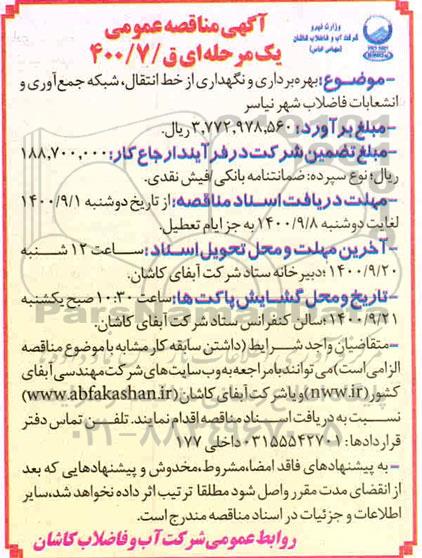 وزارت نیرو
شرکت آب و فاضلاب کاشان
(سهامی خاص)
آگهی مناقصه عمومی
یک مرحله‌ای ق/۴۰۰/۷
-موضوع: بهره‌برداری و نگهداری از خط انتقال، شبکه جمع‌آوری و
انشعابات فاضلاب شهر نیاسر
-مبلغ برآورد: ۳,۷۷۲,۹۷۸,۵۶۰ ریال.
-مبلغ تضمین شرکت در فرآیند ارجاع کار: ۱۸۸,۷۰۰,۰۰۰
ریال؛ نوع سپرده: ضمانتنامه بانکی/فیش نقدی.
-مهلت دریافت اسناد مناقصه: از تاریخ دوشنبه ۱۴۰۰/۹/۱
لغایت دوشنبه ۱۴۰۰/۹/۸ به جز ایام تعطیل.
-آخرین مهلت و محل تحویل اسناد: ساعت ۱۲ شنبه
۱۴۰۰/۹/۲۰؛ دبیرخانه ستاد شرکت آبفای کاشان.
-تاریخ و محل گشایش پاکت‌ها: ساعت ۱۰:۳۰ صبح یکشنبه
۱۴۰۰/۹/۲۱؛ سالن کنفرانس ستاد شرکت آبفای کاشان.
-متقاضیان واجد شرایط (داشتن سابقه کار مشابه با موضوع مناقصه
الزامی است) می‌توانند با مراجعه به وب‌سایت‌های شرکت مهندسی آبفای
کشور (nww.ir) و یا شرکت آبفای کاشان (www.abfakashan.ir)
نسبت به دریافت اسناد مناقصه اقدام نمایند. تلفن تماس دفتر
قراردادها: ۰۳۱۵۵۵۴۲۷۰۱ داخلی ۱۷۷
-به پیشنهادهای فاقد امضا، مشروط، مخدوش و پیشنهادهایی که بعد
از انقضای مدت مقرر واصل شود مطلقا ترتیب اثر داده نخواهد شد، سایر
اطلاعات و جزئیات در اسناد مناقصه مندرج است.
روابط عمومی شرکت آب و فاضلاب کاشان